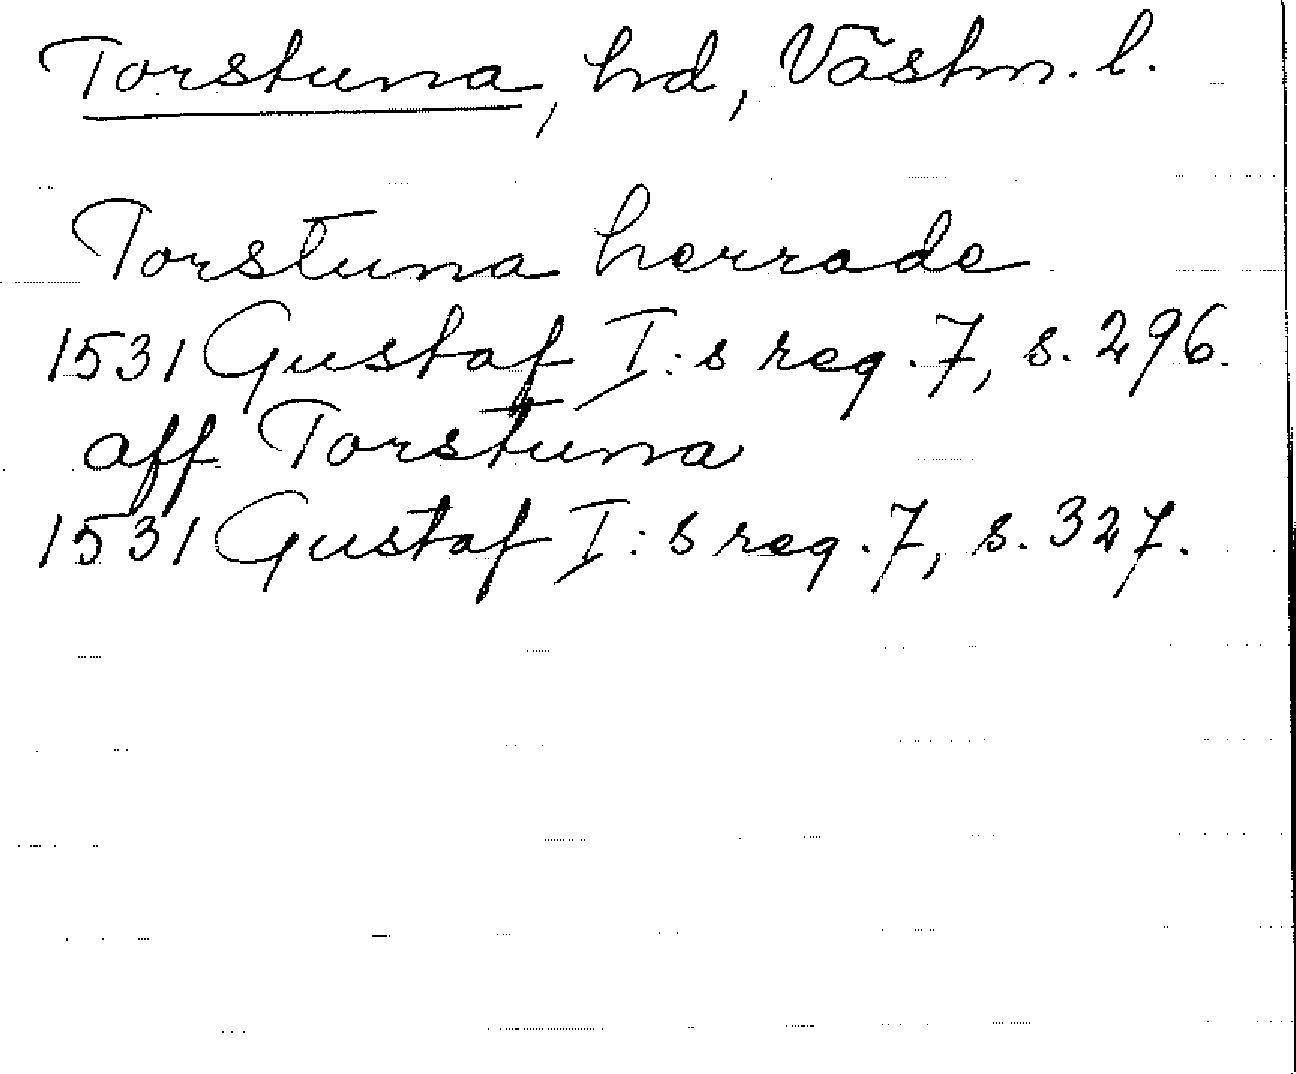 Torstuna, hd, Västm. l.
Torstuna herrade
1531 Gustaf I:s reg. 7, s. 296.
aff Torstuna
1531 Gustaf I:s reg. 7, s. 327.